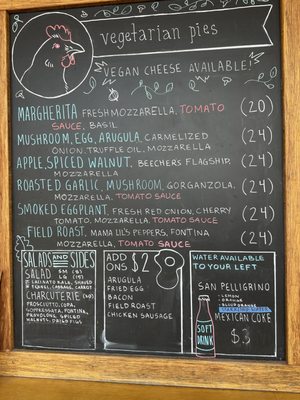 vegetarian pies
VEGAN CHEESE AVAILABLE!
MARGHERITA FRESH MOZZARELLA, TOMATO (20)
SAUCE, BASIL
MUSHROOM, EGG, ARUGULA, CARMELIZED (24)
ONION, TRUFFLE OIL, MOZZARELLA
APPLE, SPICED WALNUT, BEECHERS FLAGSHIP, (24)
MOZZARELLA
ROASTED GARLIC, MUSHROOM, GORGANZOLA, (24)
MOZZARELLA, TOMATO SAUCE
SMOKED EGGPLANT, FRESH RED ONION, CHERRY (24)
TOMATO, MOZZARELLA, TOMATO SAUCE
FIELD ROAST, MAMA LIL'S PEPPERS, FONTINA (24)
MOZZARELLA, TOMATO SAUCE
SALADS AND SIDES
SALAD
LACINATO KALE, SHAVED
FENNEL, CABBAGE, CARROT
CHARCUTERIE
PROSCIUTTO, COPA,
SOPPRESSATA, FONTINA,
PROVOLONE, SPICED
WALNUTS, DRIED FIGS
ADD ONS $2
ARUGULA
FRIED EGG
BACON
FIELD ROAST
CHICKEN SAUSAGE
WATER AVAILABLE
TO YOUR LEFT
SAN PELLIGRINO
- LEMON
- ORANGE
- BLOOD ORANGE
SPARKLING WATER
MEXICAN COKE
$3
SOFT
DRINK